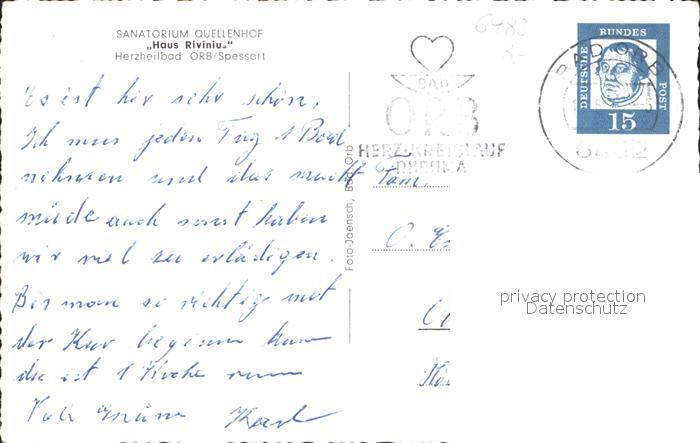 SANATORIUM QUELLENHOF
„Haus Rivinius"
Herzheilbad ORB/Spessart
Es ist hir sehr schön,
Ich mus jeden Tag 1 Baad
nehmen und das macht
müde auch sonst haben
wir viel zu erlädigen.
Bis man so richtig mit
der Kur beginnen kann
die ist 1 Woche rumm
Viele Grüße Karl
Foto-Jaensch, Bad Orb
6482
BAD
ORB
HERZ-KREISLAUF
RHEUMA
BAD ORB
6482
DEUTSCHE
BUNDES
POST
15
Fam.
privacy protection
Datenschutz